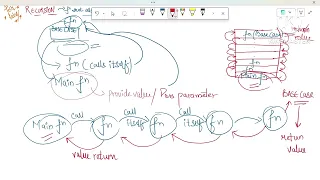 RECURSION
fn
Base Case
fn (calls itself)
Main fn
provide value / Pass parameter
fn (Base case)
fn
fn
return value
Main fn
call
fn
call itself
fn
call itself
fn
fn
BASE CASE
return value
value return